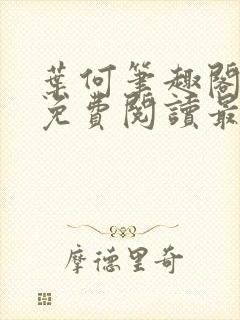 葉何筆趣閣
免費閱讀最
摩德里奇